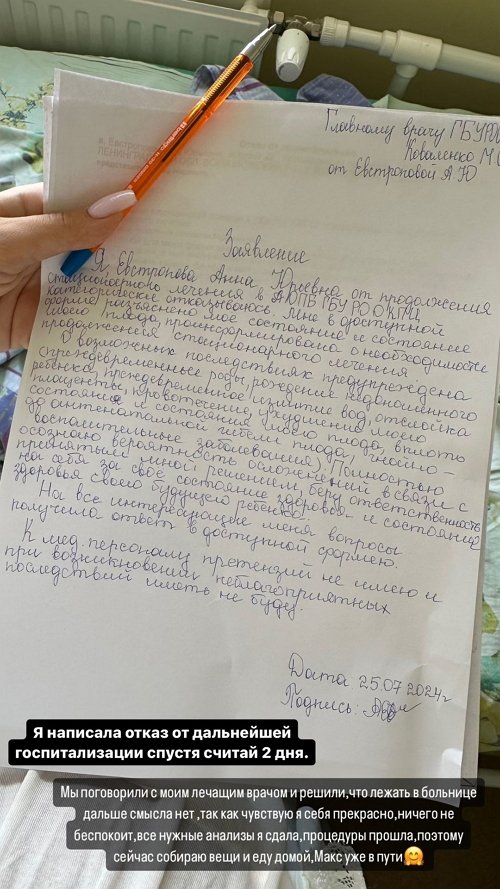 Главному врачу ГБУ РО
Коваленко М.
от Евстроповой А Ю
Заявление
Я, Евстропова Анна Юрьевна от продолжения
стационарного лечения в АОПБ ГБУ РО ОКПЦ
категорически отказываюсь. Мне в доступной
форме разъяснено мое состояние и состояние
моего плода, проинформирована о необходимости
продолжения стационарного лечения
О возможных последствиях предупреждена
(преждевременные роды, рождение недоношенного
ребенка, преждевременное излитие вод, отслойка
плаценты, кровотечение, ухудшение моего
состояния и состояния моего плода, вплоть
до антенатальной гибели плода, гнойно-
воспалительные заболевания). Полностью
осознаю вероятность осложнений в связи с
принятым мной решением, беру ответственность
на себя за своё состояние здоровья и состояние
здоровья своего будущего ребенка.
На все интересующие меня вопросы
получила ответ в доступной форме.
К мед. персоналу претензий не имею и
при возникновении неблагоприятных
последствий иметь не буду.
Дата: 25.07.2024г
Подпись:
Я написала отказ от дальнейшей
госпитализации спустя считай 2 дня.
Мы поговорили с моим лечащим врачом и решили,что лежать в больнице
дальше смысла нет ,так как чувствую я себя прекрасно,ничего не
беспокоит,все нужные анализы я сдала,процедуры прошла,поэтому
сейчас собираю вещи и еду домой,Макс уже в пути🤗